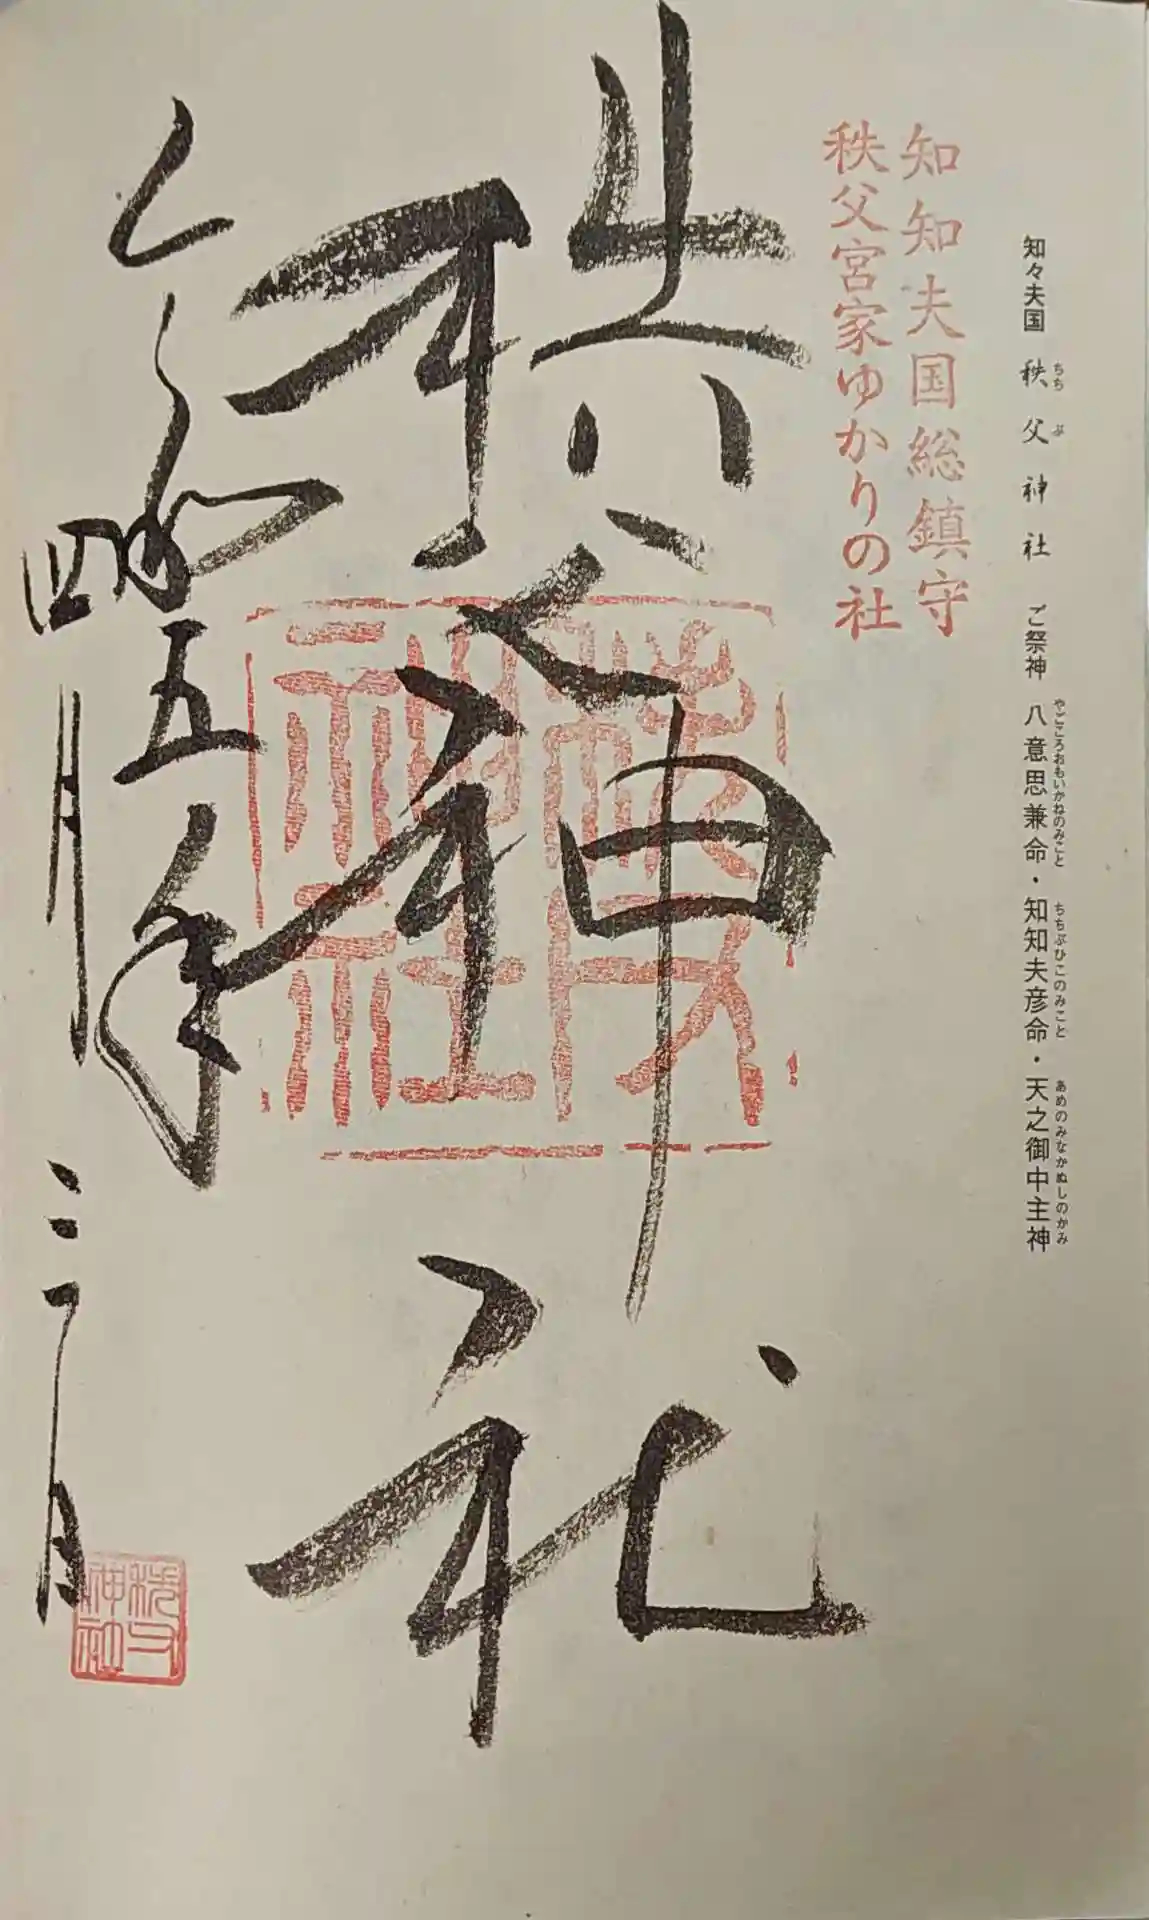 知々夫国 秩父神社 ご祭神 八意思兼命・知知夫彦命・天之御中主神
ちち ぶ やごころおもいかねのみこと ちちぶひこのみこと あめのみなかぬしのかみ
知知夫国総鎮守
秩父宮家ゆかりの社
秩父神社
令和五年
四月三日
秩父神社